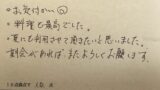 ・お気付かい◎
・料理も最高でした。
・夏にも利用させて頂きたいと思いました。
機会があれば、またよろしくお願いします。